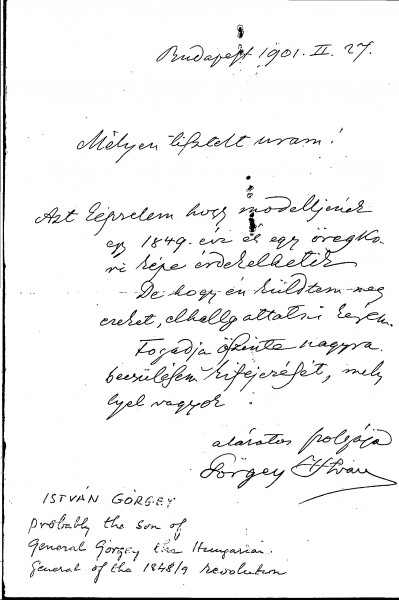 Budapest 1901. II. 27.
Mélyen tisztelt uram!
Azt képzelem hogy modelljének
egy 1849. évi és egy öregko-
ri képe érdekelhetik
De hogy én küldtem meg
ezeket, elhallgattatni kérem.
Fogadja őszinte nagyra-
becsülésem kifejezését, mely
lyel vagyok
alázatos szolgája
Görgey István
ISTVÁN GÖRGEY
probably the son of
General Görgey the Hungarian
General of the 1848/9 revolution